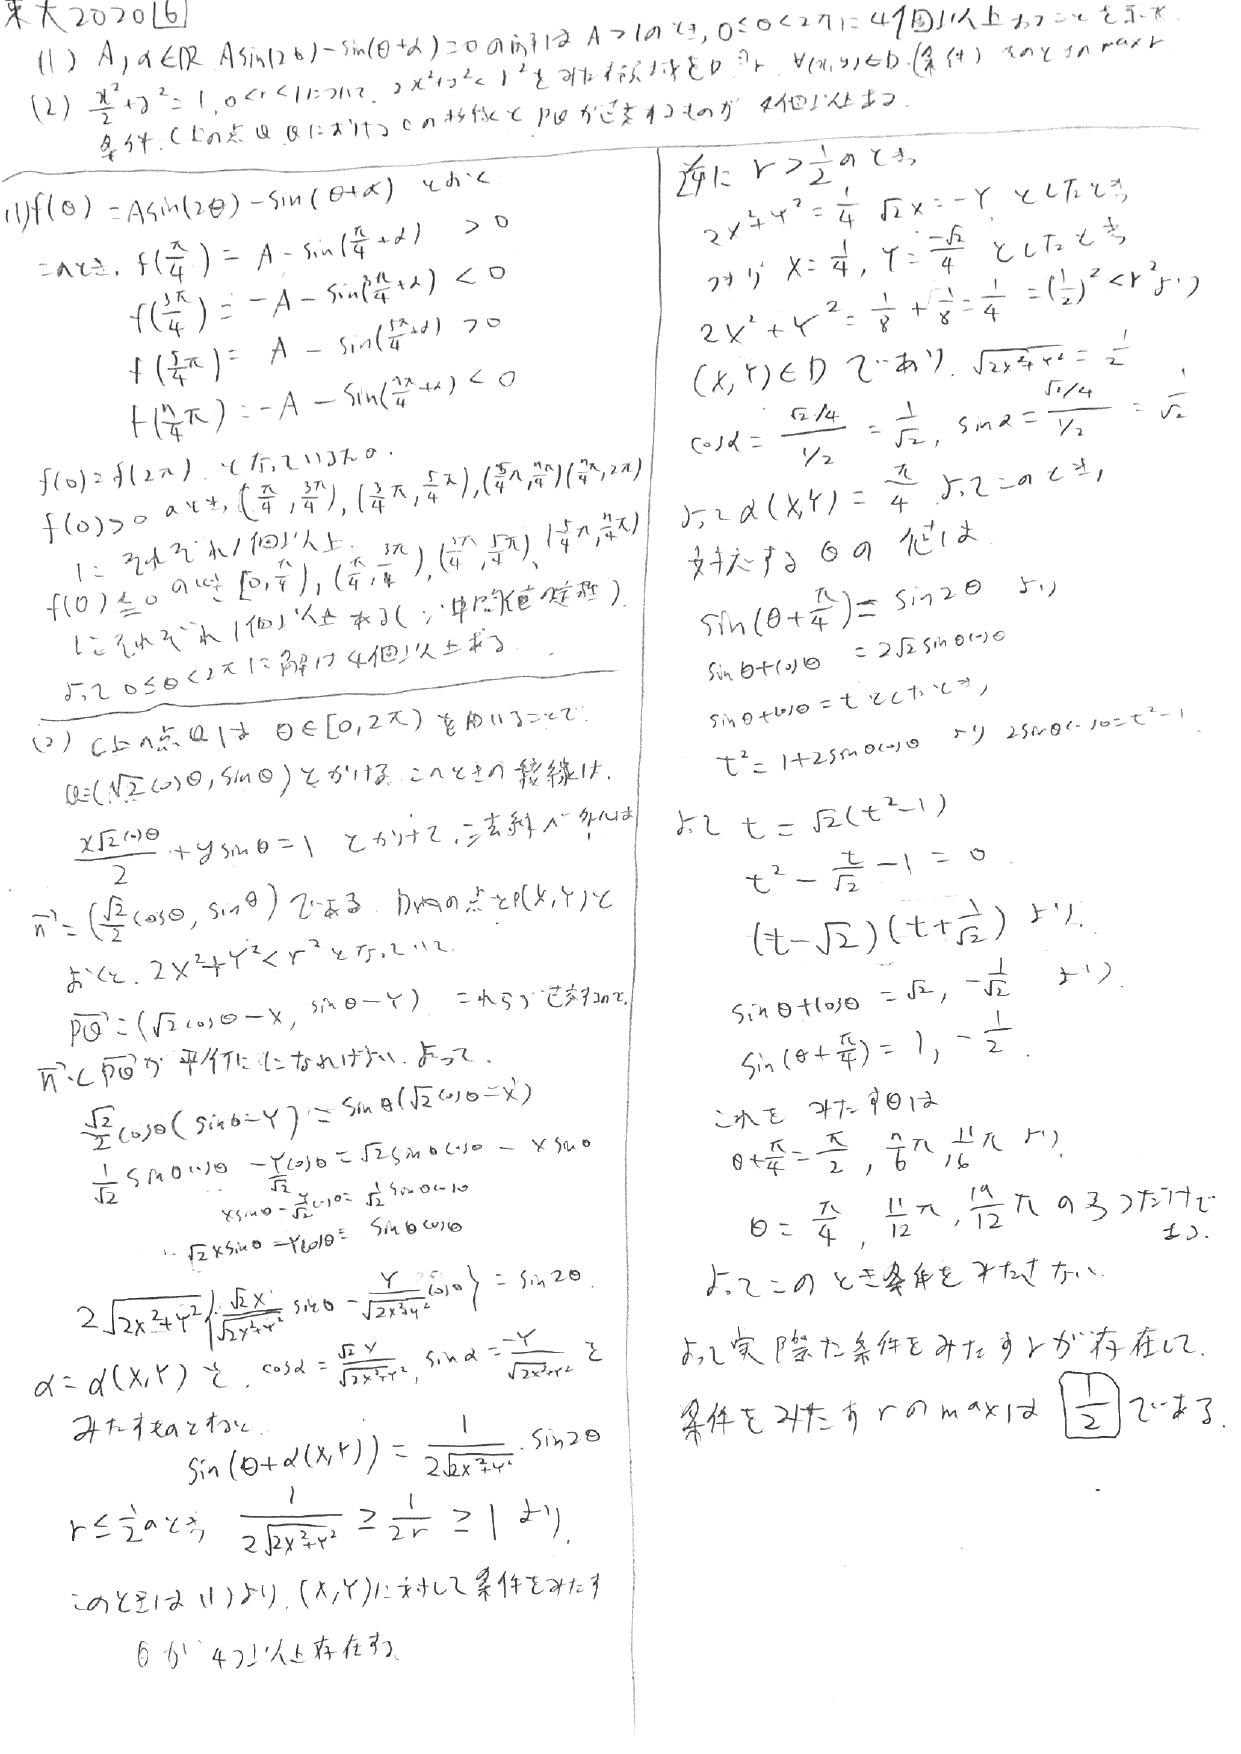 東大2020 6
(1) A, α∈ℝ Asin(2θ)-sin(θ+α)=0の解はA>1のとき, 0≦θ<2πに4個以上あることを示せ.
(2) x²/2+y²=1, 0<r<1について, 2x²+y²<r²をみたす領域をD ∀(x,y)∈D (条件) max r
条件: C上の点Q QにおけるCの接線とPQが直交するものが4個以上ある.
(1) f(θ)=Asin(2θ)-sin(θ+α) とおく
このとき, f(π/4)=A-sin(π/4+α) >0
f(3π/4)=-A-sin(3π/4+α)<0
f(5/4π)=A-sin(5π/4+α)>0
f(7/4π)=-A-sin(7π/4+α)<0
f(0)=f(2π) となっているため.
f(0)>0 のとき, (π/4, 3π/4), (3/4π, 5/4π), (5/4π, 7π/4) (7/4π, 2π)
にそれぞれ1個以上.
f(0)≦0 のとき [0, π/4), (π/4, 3π/4), (3π/4, 5π/4), (5/4π, 7/4π)
にそれぞれ1個以上ある(∵中間値の定理).
よって 0≦θ<2πに解は4個以上ある
(2) C上の点Qは θ∈[0,2π) を用いることで.
Q=(√2cosθ, sinθ)とかける. このときの接線は.
x√2cosθ/2+ysinθ=1 とかけて, 法線ベクトルは
n→=(√2/2 cosθ, sinθ)である. D内の点をP(X,Y)と
おくと, 2X²+Y²<r²となっていて.
PQ→=(√2cosθ-X, sinθ-Y) これらが直交するので,
n→とPQ→が平行になればよい. よって.
√2/2 cosθ(sinθ-Y)=sinθ(√2cosθ-X)
1/√2 sinθcosθ-Ycosθ/√2=√2sinθcosθ-Xsinθ
Xsinθ-Y/√2 cosθ=1/√2 sinθcosθ
∴ √2Xsinθ-Ycosθ=sinθcosθ
2√(2X²+Y²){√2X/√(2X²+Y²) sinθ-Y/√(2X²+Y²) cosθ}=sin2θ.
α=α(X,Y)を, cosα=√2X/√(2X²+Y²), sinα=-Y/√(2X²+Y²) を
みたすものとすると
sin(θ+α(X,Y))=1/(2√(2X²+Y²))・sin2θ
r≦1/2のとき, 1/(2√(2X²+Y²))≧1/2r≧1 より,
このときは(1)より, (X,Y)に対して条件をみたす
θが4つ以上存在する
逆に r>1/2のとき,
2X²+Y²=1/4 √2X=-Y としたとき
つまり X=1/4, Y=-√2/4 としたとき
2X²+Y²=1/8+1/8=1/4=(1/2)²<r²より
(X,Y)∈Dであり, √(2X²+Y²)=1/2
cosα=(√2/4)/(1/2)=1/√2, sinα=(√2/4)/(1/2)=1/√2
よってα(X,Y)=π/4 よってこのとき,
対応するθの値は
sin(θ+π/4)=sin2θ より
sinθ+cosθ=2√2sinθcosθ
sinθ+cosθ=t としたとき,
t²=1+2sinθcosθ より 2sinθcosθ=t²-1
よって t=√2(t²-1)
t²-t/√2-1=0
(t-√2)(t+1/√2) より,
sinθ+cosθ=√2, -1/√2 より,
sin(θ+π/4)=1, -1/2.
これをみたすθは
θ+π/4=π/2, 7/6π, 11/6π より,
θ=π/4, 11/12π, 19/12πの3つだけで
ある.
よってこのとき条件をみたさない
よって実際に条件をみたすrが存在して.
条件をみたすrのmaxは 1/2 である.